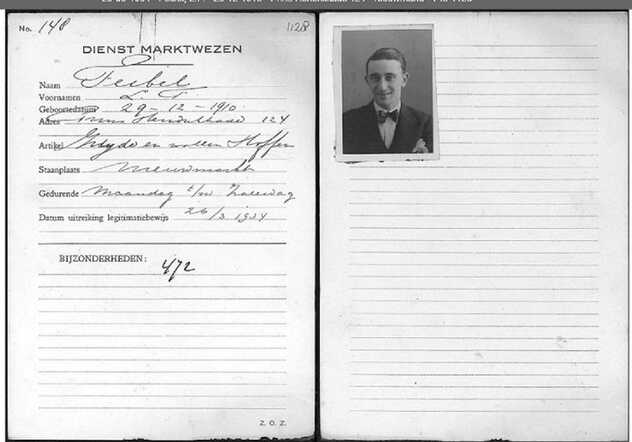 No. 148
1128
DIENST MARKTWEZEN
Naam Feibel
Voornamen L. P.
Geboortedatum 29-12-1910
Adres Prins Hendrikkade 124
Artikel Zijde en wollen Stoffen
Staanplaats Nieuwmarkt
Gedurende Maandag t/m Zaterdag
Datum uitreiking legitimatiebewijs 26/3 1934
BIJZONDERHEDEN:
472
Z. O. Z.